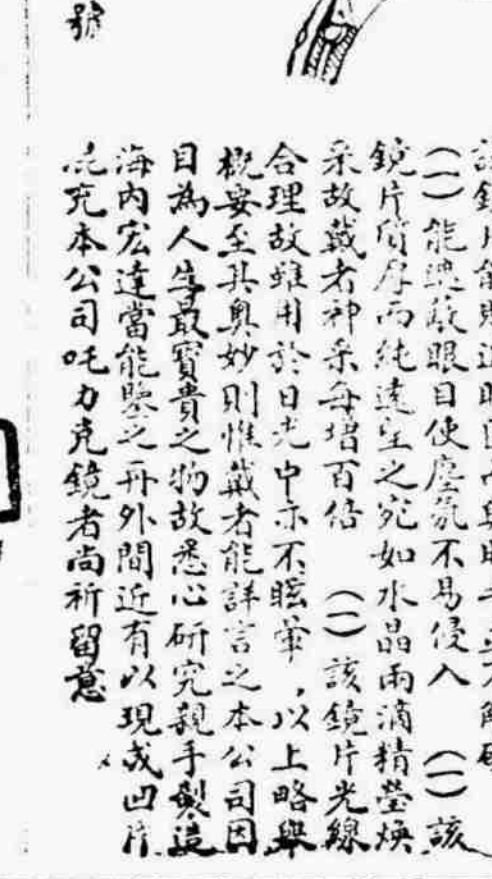 能聰敏眼目使塵氛不易侵入　(一)該
鏡片質厚而純遠望之宛如水晶雨滴精瑩煥
采故戴者神采每增百倍　(一)該鏡片光線
合理故雖用於日光中亦不眩暈，以上略舉
概要至其奧妙則惟戴者能詳言之本公司因
目為人生最寶貴之物故悉心研究親手製造
海內宏達當能鑒之再外間近有以現成凹片
充本公司吒力克鏡者尚祈留意
號